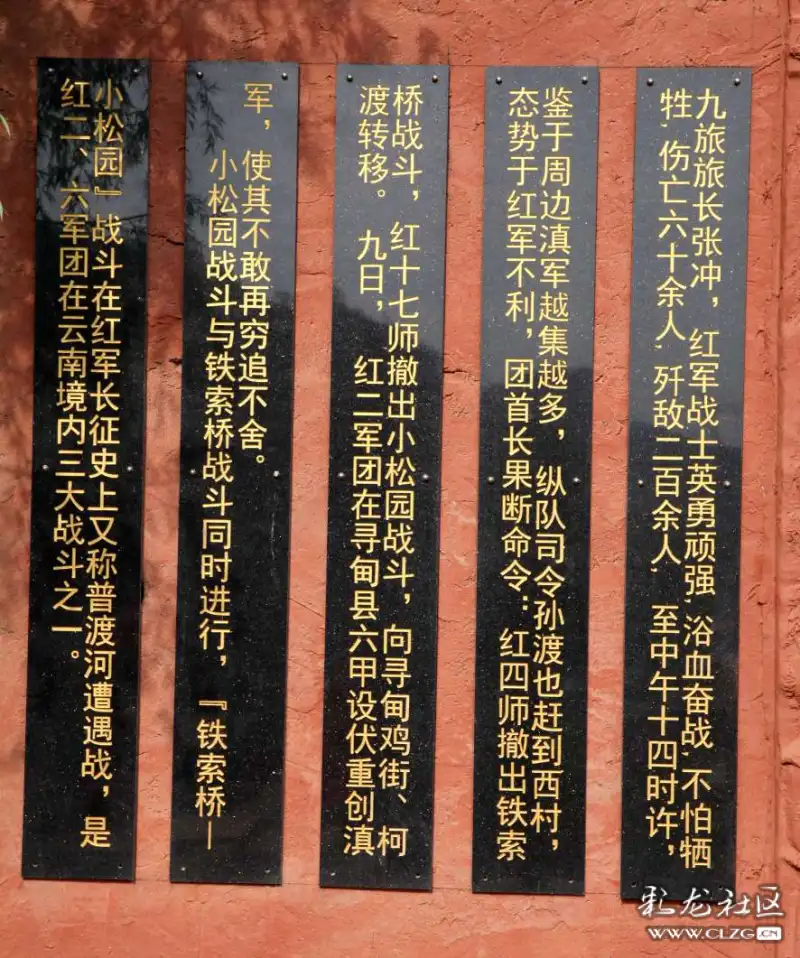 九旅旅长张冲，红军战士英勇顽强、浴血奋战、不怕牺
牲、伤亡六十余人、歼敌二百余人、至中午十四时许，
鉴于周边滇军越集越多，纵队司令孙渡也赶到西村，
态势于红军不利，团首长果断命令：红四师撤出铁索
桥战斗，红十七师撤出小松园战斗，向寻甸鸡街、柯
渡转移。九日，红二军团在寻甸县六甲设伏重创滇
军，使其不敢再穷追不舍。
小松园战斗与铁索桥战斗同时进行，『铁索桥—
小松园』战斗在红军长征史上又称普渡河遭遇战，是
红二、六军团在云南境内三大战斗之一。
彩龙社区
WWW.CLZG.CN